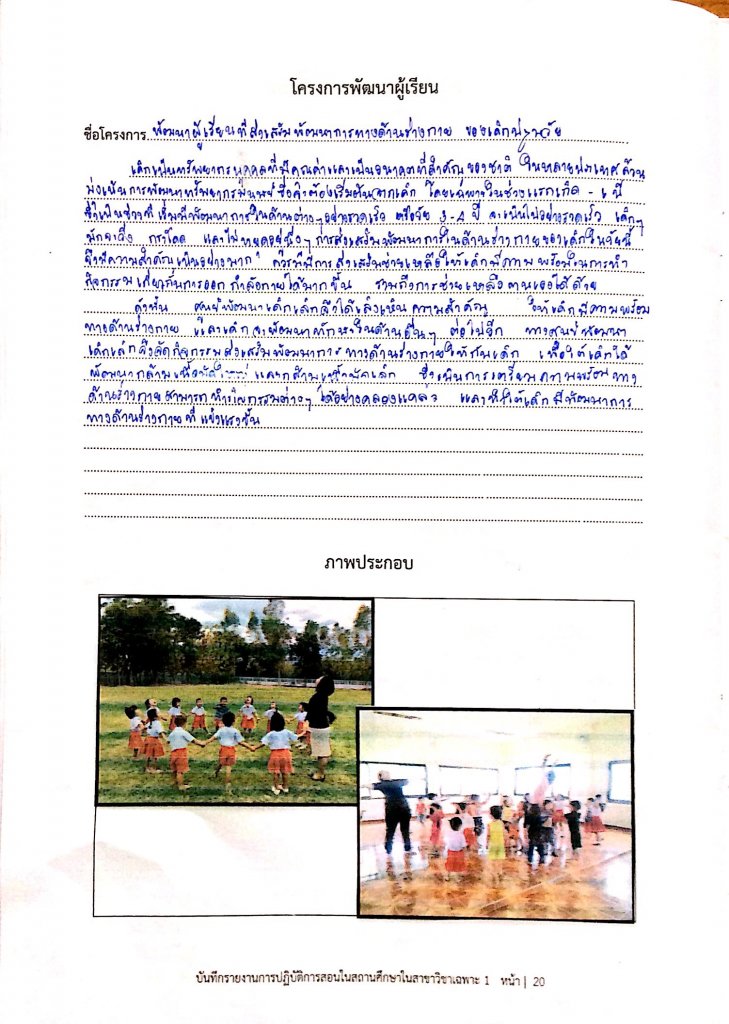 โครงการพัฒนาผู้เรียน
ชื่อโครงการ พัฒนาผู้เรียนที่ส่งเสริมพัฒนาการทางด้านร่างกาย ของเด็กปฐมวัย
เด็กเป็นทรัพยากรบุคคลที่มีคุณค่าและเป็นอนาคตที่สำคัญของชาติ ในหลายประเทศล้วน
มุ่งเน้นการพัฒนาทรัพยากรมนุษย์ ซึ่งจำต้องเริ่มต้นจากเด็ก โดยเฉพาะในช่วงแรกเกิด - 6 ปี
ซึ่งเป็นช่วงที่เริ่มมีพัฒนาการในด้านต่างๆอย่างรวดเร็ว หรือวัย 3-4 ปี จะเป็นไปอย่างรวดเร็ว เด็กๆ
มักจะวิ่ง กระโดด และไม่หยุดอยู่นิ่งๆ การส่งเสริมพัฒนาการในด้านร่างกายของเด็กในวัยนี้
จึงมีความสำคัญเป็นอย่างมาก ควรมีการส่งเสริมช่วยเหลือให้เด็กมีความพร้อมในการทำ
กิจกรรมเกี่ยวกับการออกกำลังกายได้มากขึ้น รวมถึงการช่วยเหลือตนเองได้ด้วย
ดังนั้น ศูนย์พัฒนาเด็กเล็กจึงได้เล็งเห็นความสำคัญ ให้เด็กมีความพร้อม
ทางด้านร่างกาย และเด็กจะพัฒนาทักษะในด้านอื่นๆ ต่อไปอีก ทางศูนย์พัฒนา
เด็กเล็กจึงจัดกิจกรรมส่งเสริมพัฒนาการทางด้านร่างกายให้กับเด็ก เพื่อให้เด็กได้
พัฒนากล้ามเนื้อมัดใหญ่ และกล้ามเนื้อมัดเล็ก ซึ่งเป็นการเตรียมความพร้อมทาง
ด้านร่างกายสามารถทำกิจกรรมต่างๆ ได้อย่างคล่องแคล่ว และทำให้เด็กมีพัฒนาการ
ทางด้านร่างกายที่แข็งแรงขึ้น
ภาพประกอบ
บันทึกรายงานการปฏิบัติการสอนในสถานศึกษาในสาขาวิชาเฉพาะ 1 หน้า | 20